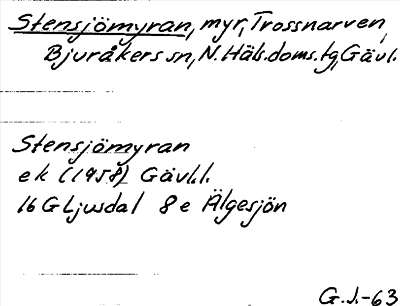 Stensjömyran, myr, Trossnarven,
Bjuråkers sn, N. Häls. doms. tg, Gävl.
Stensjömyran
ek (1958) Gävl.l.
16 G Ljusdal 8 e Älgesjön
G.J.-63